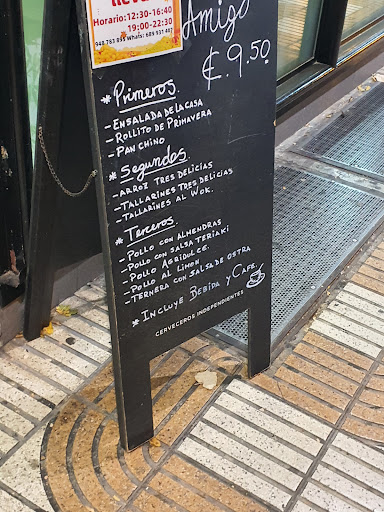 Horario: 12:30-16:40
19:00-22:30
Amigo
€.9.50
* Primeros.
- ENSALADA DE LA CASA
- ROLLITO DE PRIMAVERA
- PAN CHINO
* Segundos.
- ARROZ TRES DELICIAS
- TALLARINES TRES DELICIAS
- TALLARINES AL WOK.
* Terceros.
- POLLO CON ALMENDRAS
- POLLO CON SALSA TERIAKI
- POLLO AGRIDULCE.
- POLLO AL LIMON
- TERNERA CON SALSA DE OSTRA
* INCLUYE BEBIDA Y CAFE.
CERVECEROS INDEPENDIENTES